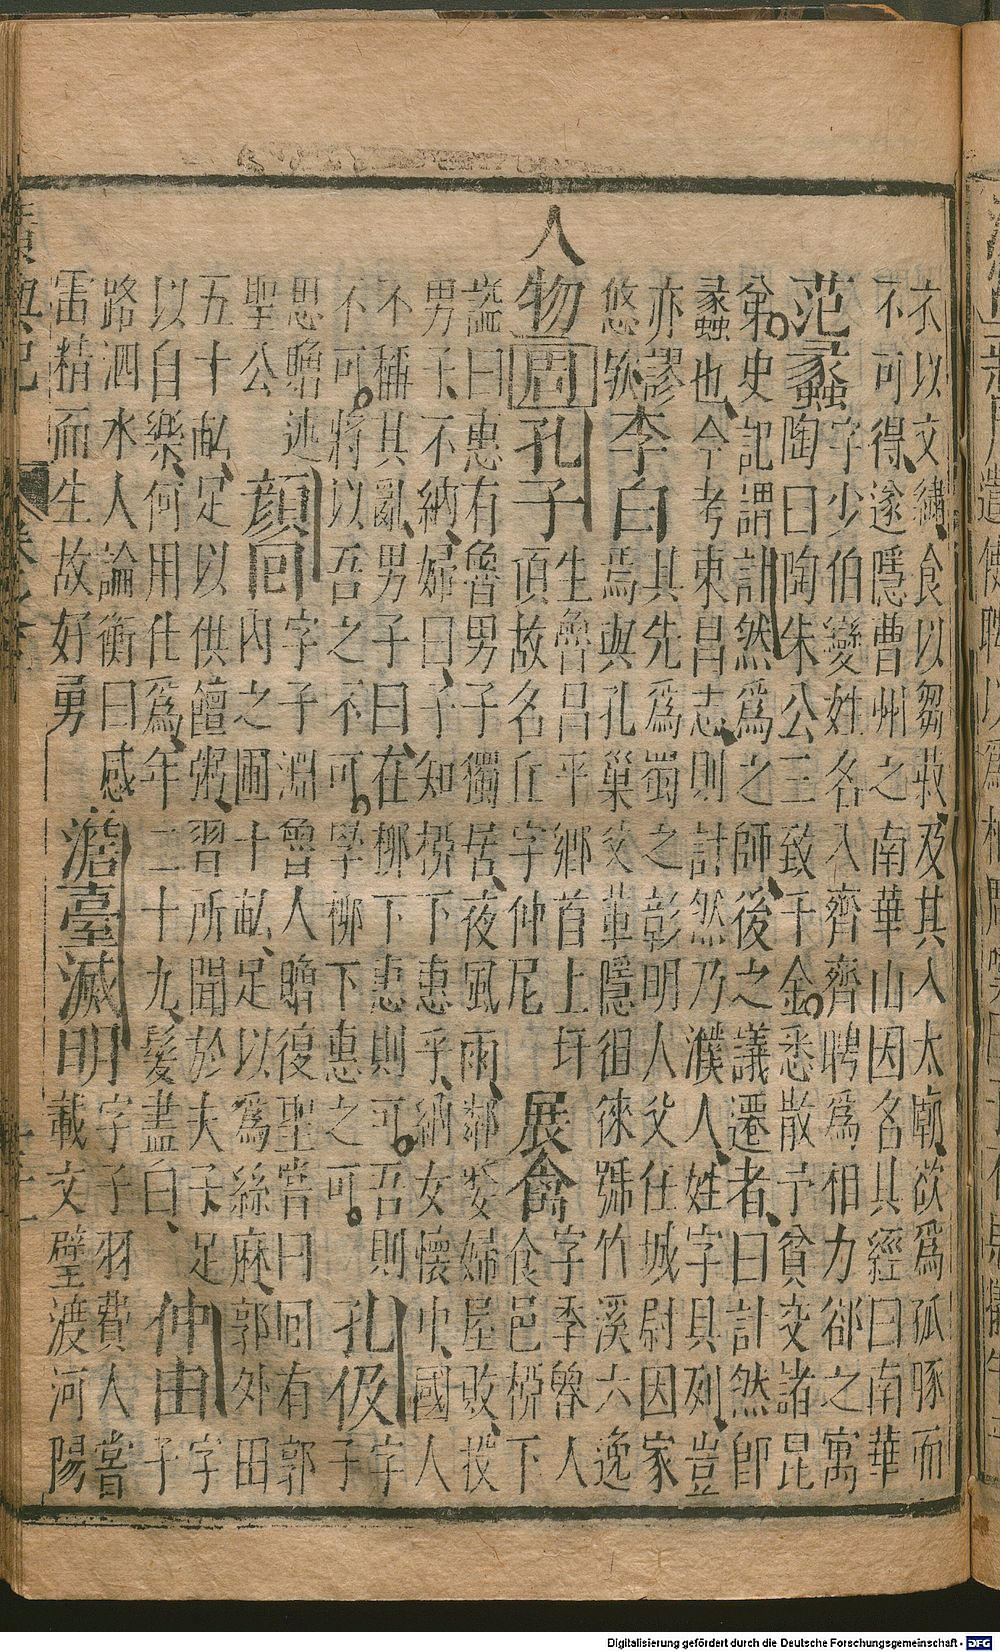 衣以文繡、食以芻菽、及其入太廟、欲爲孤豚而
不可得、遂隱曹州之南華山因名其經曰南華
范蠡
字少伯變姓名入齊齊聘爲相力卻之寓
陶曰陶朱公三致千金。悉散予貧交諸昆
弟。史記謂計然爲之師、後之議遷者、曰計然卽
蠡也、今考東昌志、則計然乃濮人、姓字具列、豈
亦謬
悠欤、李白
其先爲蜀之彰明人父任城尉因家
焉與孔巢父輩隱徂徠號竹溪六逸
人物周孔子
生魯昌平鄉首上圩
頂故名丘字仲尼
展禽
字季魯人
食邑柳下
謚曰惠有魯男子獨居、夜風雨、鄰嫠婦屋敗、投
男子、不納、婦曰、子知柳下惠乎、納女懷中、國人
不稱其亂、男子曰、在柳下惠則可。吾則
不可。將以吾之不可。學柳下惠之可。
孔伋
字
子
思贈述
聖公
顔回
字子淵魯人贈復聖嘗曰回有郭
內之圃十畝、足以爲絲麻、郭外田
五十畝、足以供饘粥、習所聞於夫子、足
以自樂、何用仕爲、年二十九、髮盡白、
仲由
字
子
路泗水人論衡曰感
雷精而生故好勇
澹臺滅明
字子羽費人嘗
載文璧渡河陽
Digitalisierung gefördert durch die Deutsche Forschungsgemeinschaft - DFG